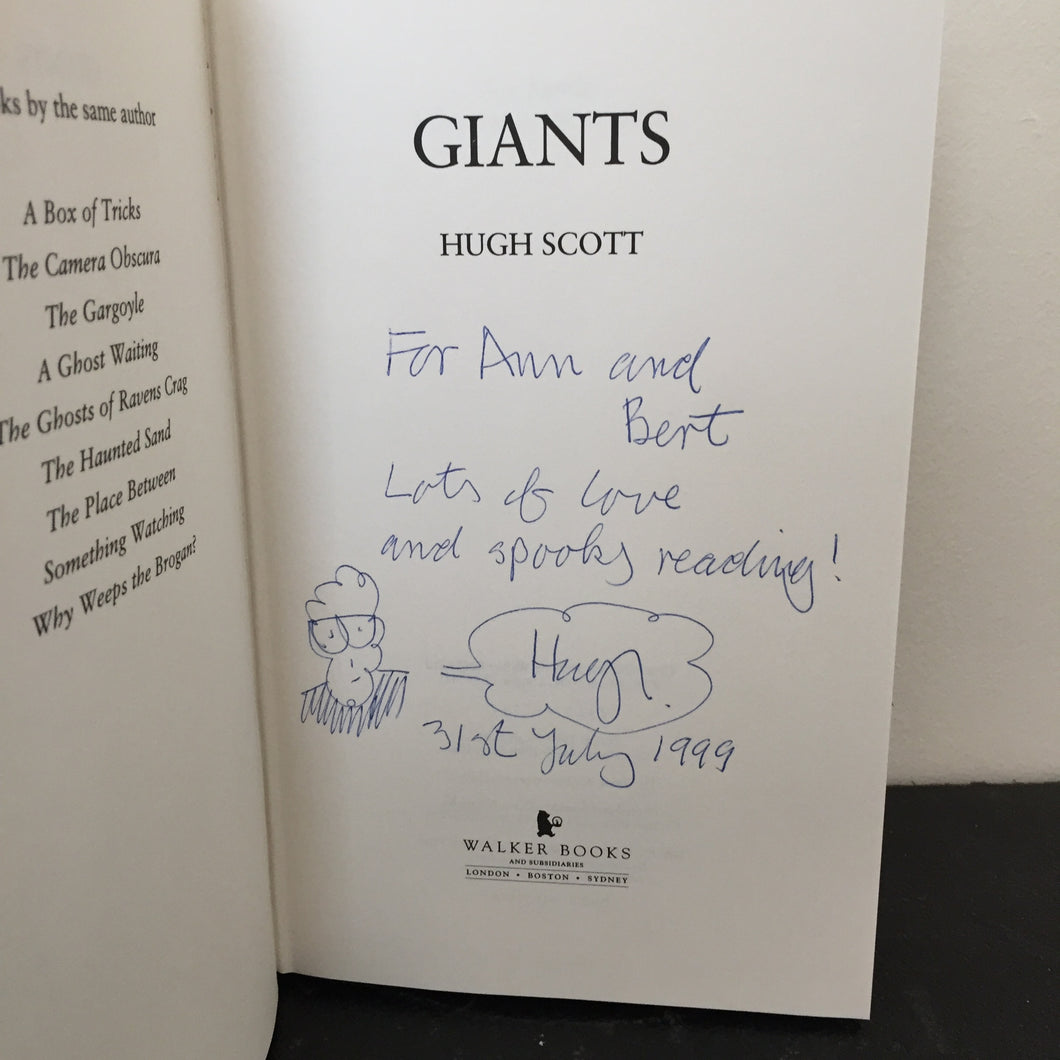 ks by the same author
A Box of Tricks
The Camera Obscura
The Gargoyle
A Ghost Waiting
The Ghosts of Ravens Crag
The Haunted Sand
The Place Between
Something Watching
Why Weeps the Brogan?
GIANTS
HUGH SCOTT
For Ann and
Bert
Lots of love
and spooky reading!
Hugh.
31st July 1999
WALKER BOOKS
AND SUBSIDIARIES
LONDON • BOSTON • SYDNEY